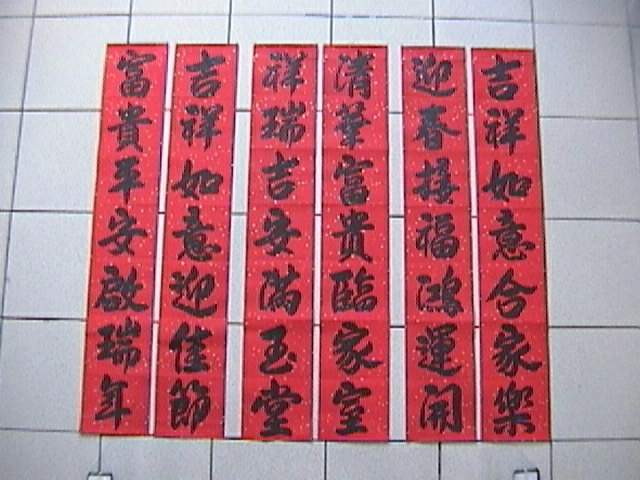 吉祥如意合家樂
迎春接福鴻運開
清華富貴臨家室
祥瑞吉安滿玉堂
吉祥如意迎佳節
富貴平安啟瑞年